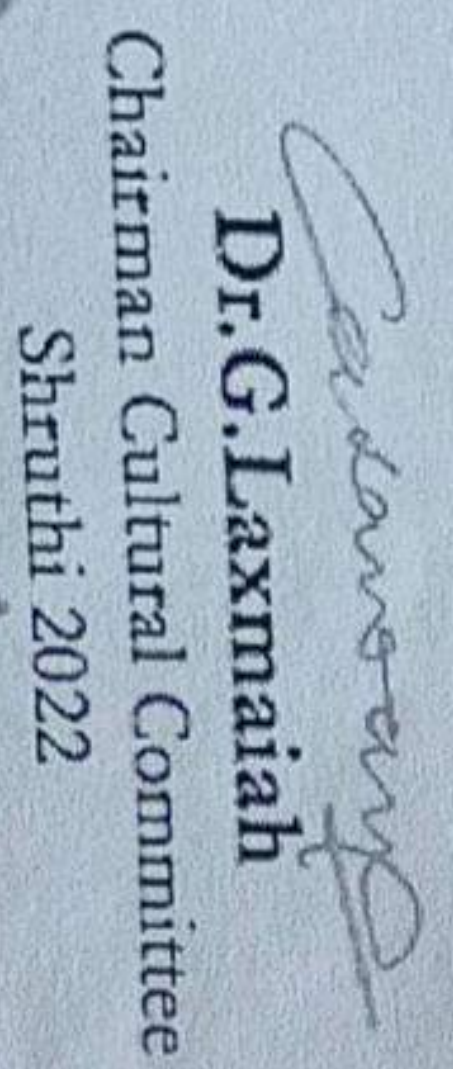 Dr.G.Laxmaiah
Chairman Cultural Committee
Shruthi 2022